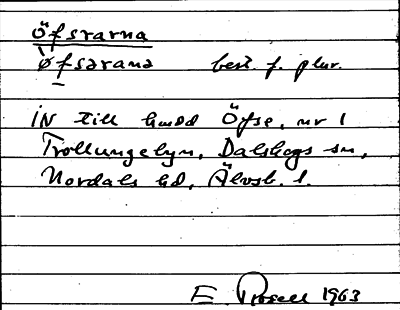 Öfsrarna
ø̀fsarana best. f. plur.
IN till hmd Öfse, nr 1
Trollungebyn, Dalskogs sn,
Nordals hd, Älvsb. l.
E. Rosell 1963